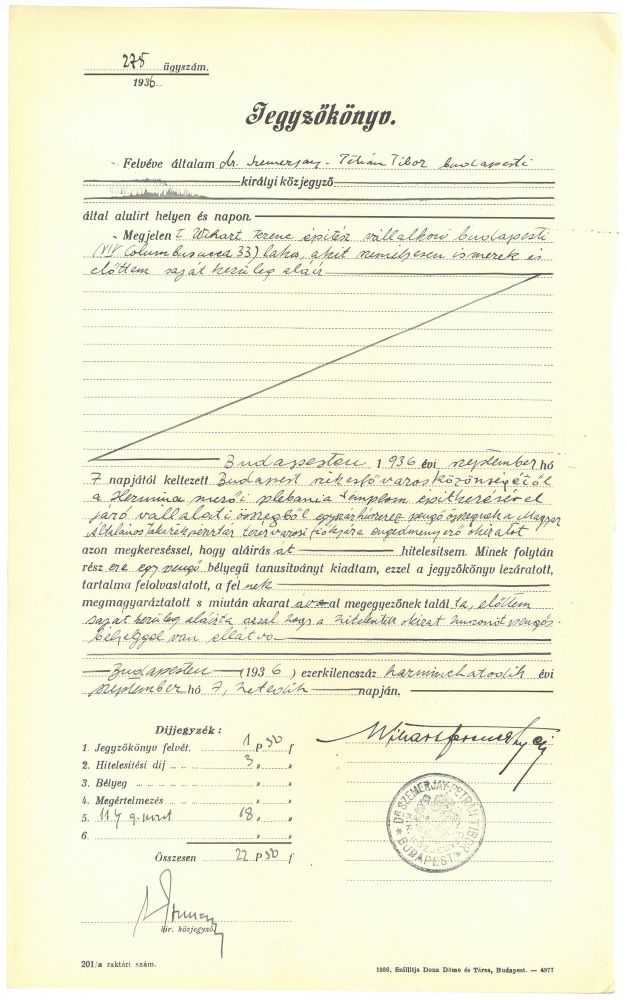 275 ügyszám.
1936
Jegyzőkönyv.
Felvéve általam dr. Szemerjay-Petrán Tibor budapesti
királyi közjegyző
által alulirt helyen és napon.
Megjelent Wihart Ferenc építész vállalkozó budapesti
(XIV Columbus ucca 33) lakos, akit személyesen ismerek és
előttem saját kezüleg aláír
Budapesten 1936 évi szeptember hó
7 napjától keltezett Budapest székesfőváros közönségétől
a Hermina mezői plébánia templom építkezésével
járó vállalati összegből pengő összegnek a Magyar
Általános takarékpénztár terézvárosi fiókjára engedményező okiratot
azon megkereséssel, hogy aláírását hitelesítsem. Minek folytán
részére egy pengő bélyegü tanusitványt kiadtam, ezzel a jegyzőkönyv lezáratott,
tartalma felolvastatott, a félnek
megmagyaráztatott s miután akaratával megegyezőnek találta, előttem
saját kezüleg aláírta azzal hogy a hitelesített okirat pengős
bélyeggel van ellátva
Budapesten (1936) ezerkilencszáz harminchatodik évi
szeptember hó 7, hetedik napján.
Dijjegyzék:
1. Jegyzőkönyv felvét. 1 P 50 f
2. Hitelesitési dij 3 „ „
3. Bélyeg „ „
4. Megértelmezés „ „
5. 117 18 „ „
6. „ „
Összesen 22 P 50 f
Wihart Ferenc
DR SZEMERJAY-PETRÁN TIBOR
* BUDAPEST *
kir. közjegyző
201/a raktári szám.
1936, Szállitja Dona Döme és Társa, Budapest. — 4977